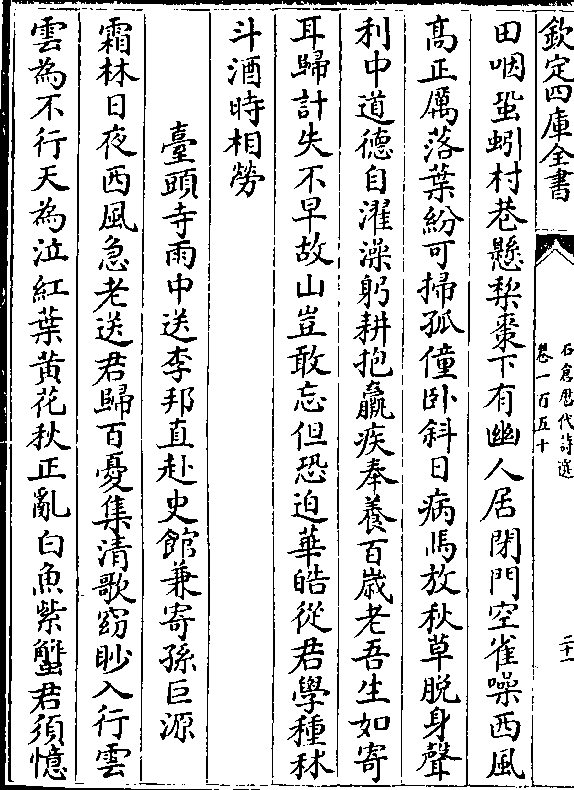 欽定四庫全書
石倉歷代詩選
卷一百五十
二十一
田咽蛩蚓村巷懸棃棗下有幽人居閉門空雀噪西風
髙正厲落葉紛可掃孤僮卧斜日病馬放秋草脱身聲
利中道德自濯澡躬耕抱羸疾奉養百歳老吾生如寄
耳歸計失不早故山豈敢忘但恐迫華皓從君學種秫
斗酒時相勞
臺頭寺雨中送李邦直赴史館兼寄孫巨源
霜林日夜西風急老送君歸百憂集清歌窈眇入行雲
雲為不行天為泣紅葉黄花秋正亂白魚紫蟹君須憶